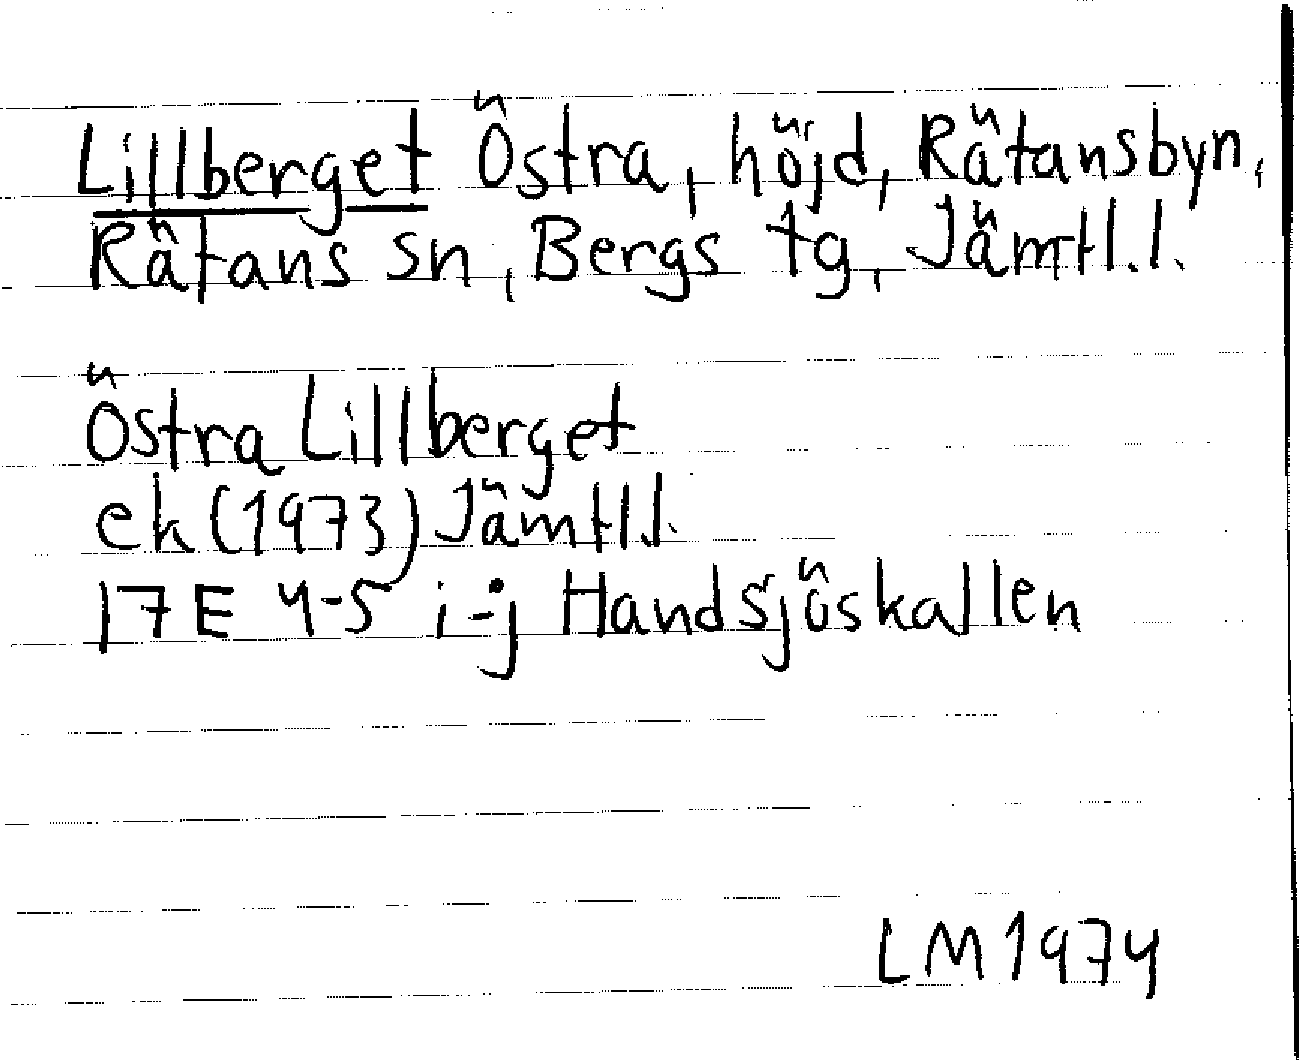 Lillberget Östra, höjd, Rätansbyn,
Rätans sn, Bergs tg, Jämtl.l.
Östra Lillberget
ek (1973) Jämtl.l.
17E 4-5 i-j Handsjöskallen
LM 1974